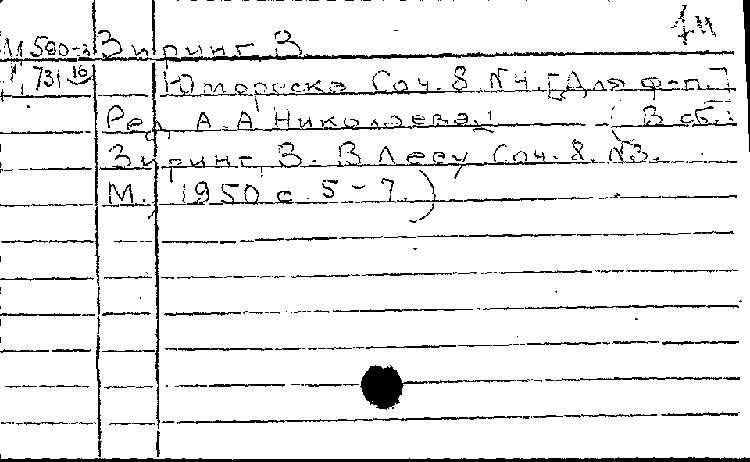 1н
М 580-3 Зиринг, В.
731 16 Юмореска Соч. 8. №4. [Для ф-п.]
Ред. А. А Николаева. (В сб.:
Зиринг, В. В лесу Соч. 8. №3.
М., 1950 с. 5-7.)